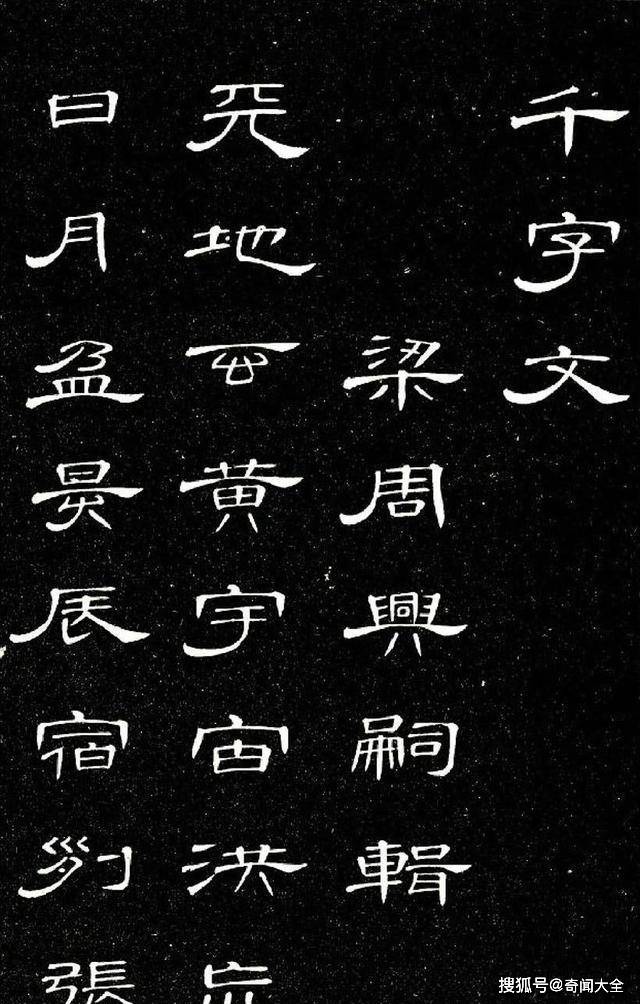 千字文
梁周興嗣輯
天地玄黃宇宙洪
日月盈昃辰宿列張
搜狐号@奇闻大全